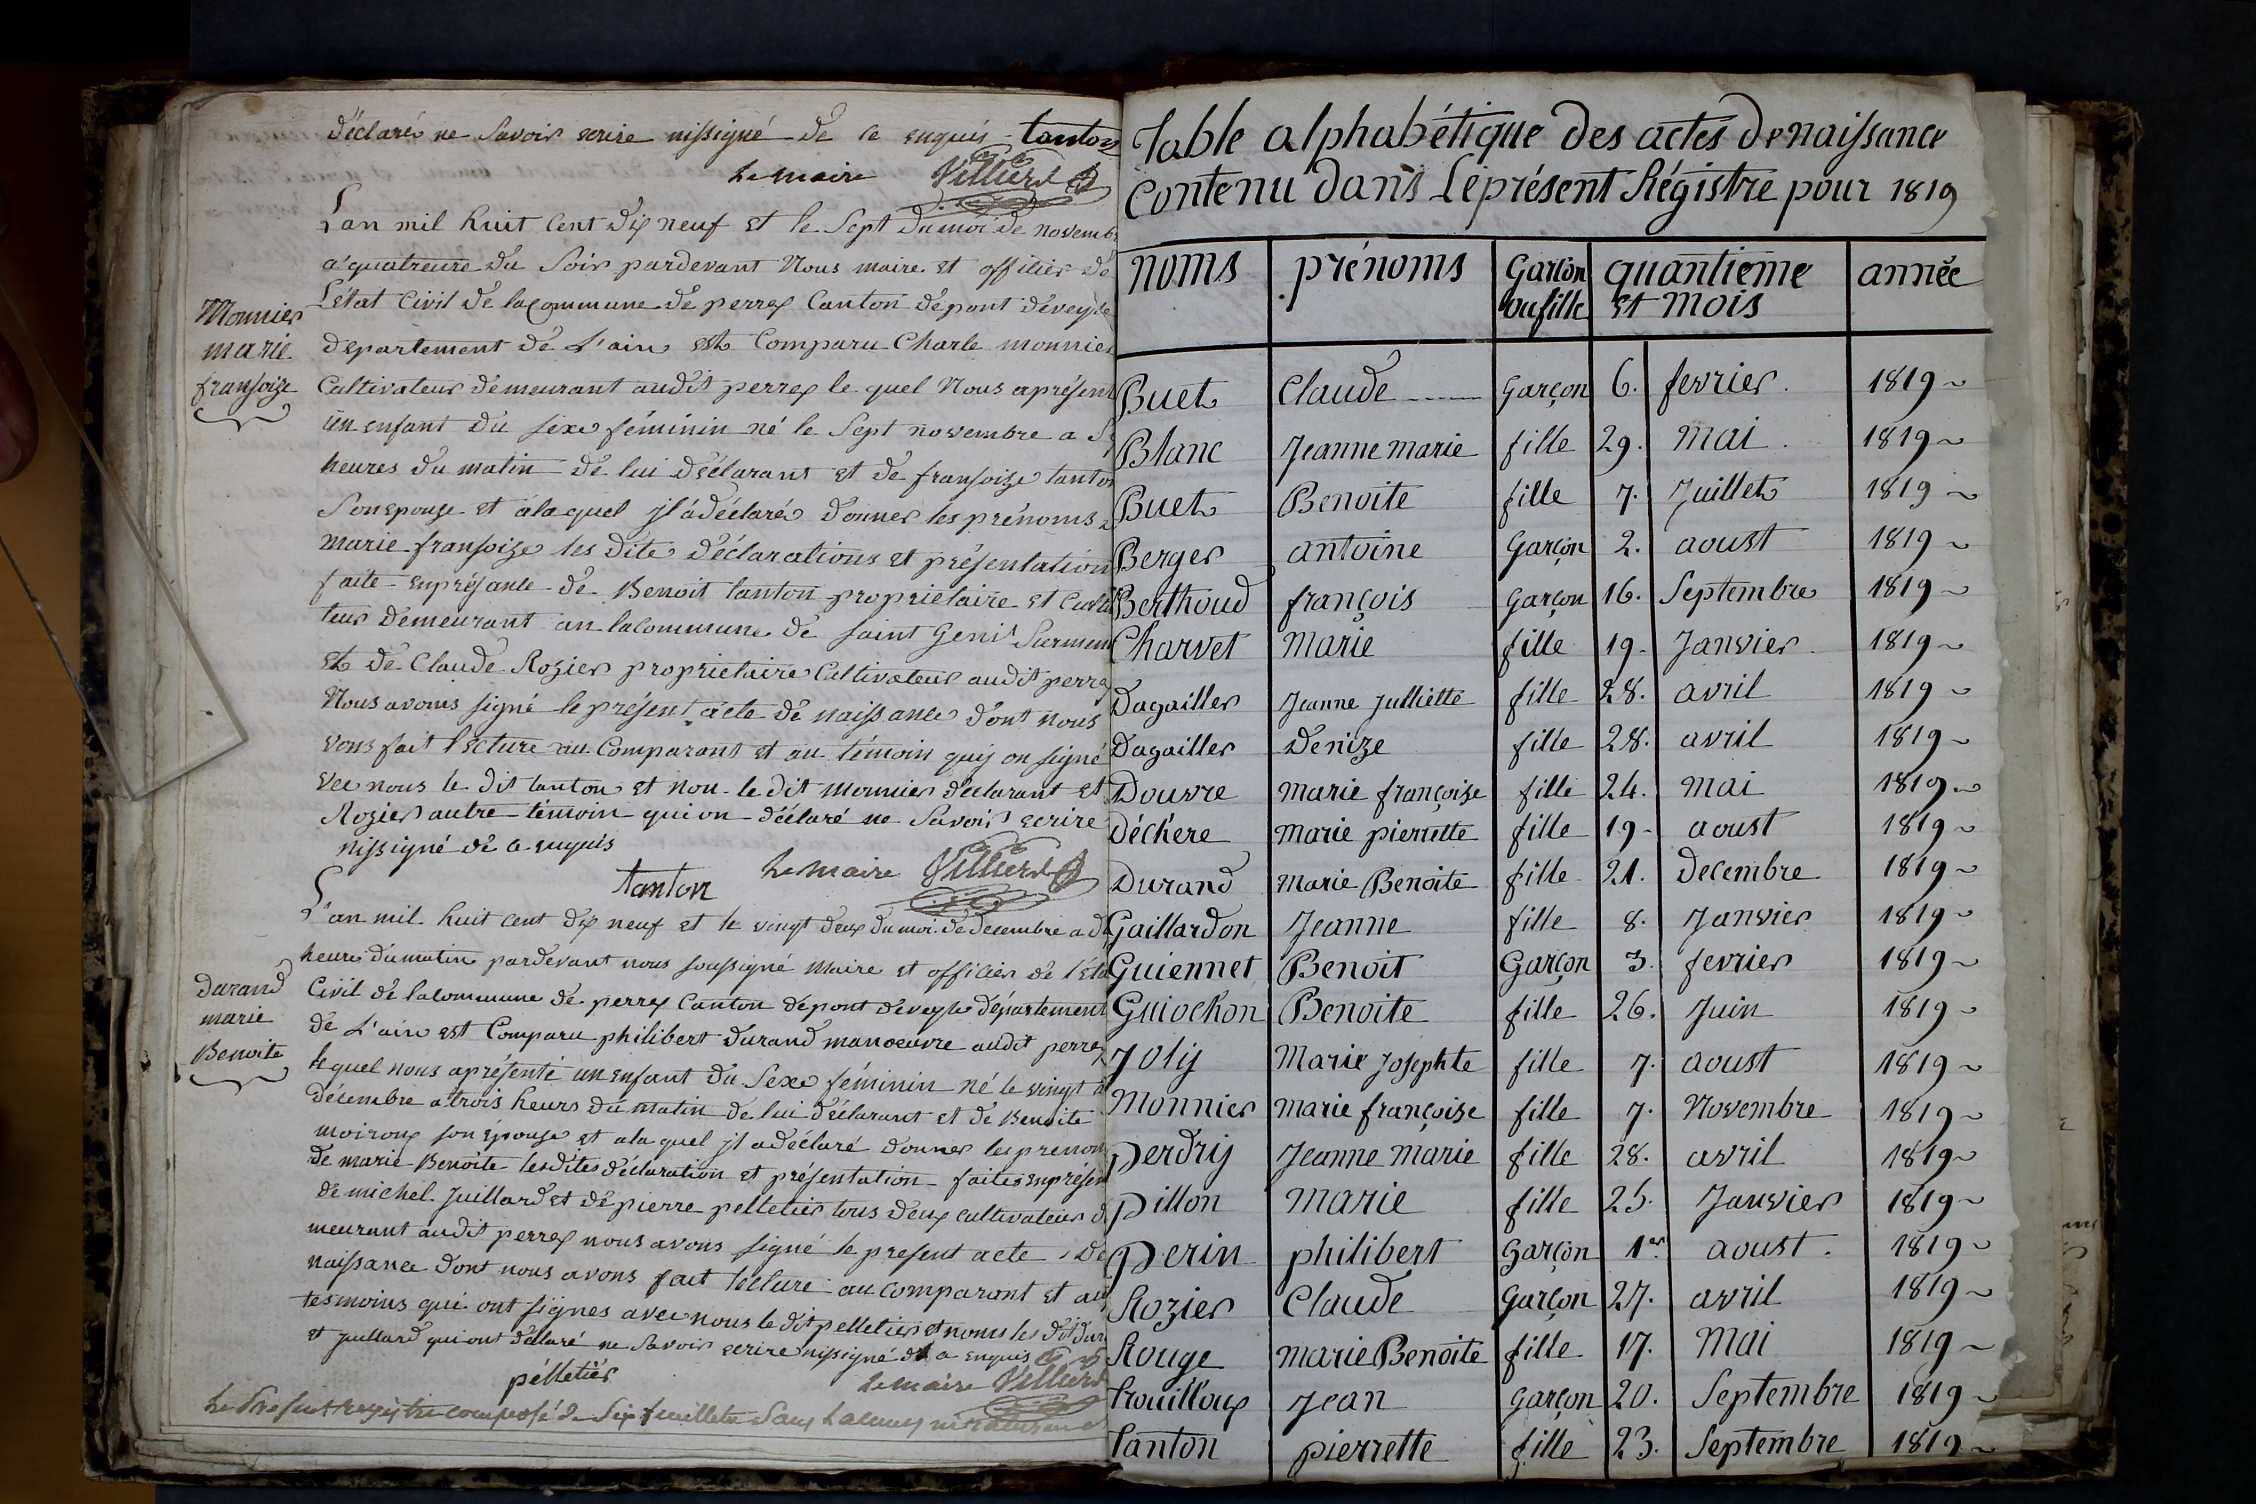 déclaré ne Savoir ecrire nissigné de ce enquis tanton
Le maire Villierd
L'an mil huit Cent dix neuf et le Sept du moi de novemb
a quatreure du Soir pardevant Nous maire et officier de
L'état Civil de la Commune de perrex Canton de pont de veyle
departement de L'ain est Comparu Charle monnier
Cultivateur demeurant audit perrex le quel Nous a présent
un enfant du sexe féminin né le Sept novembre a
heures du matin de lui déclarant et de fransoize tanton
Son epouse et a la quel jl a déclaré donner les prénoms
marie fransoize les dite déclarations et présentation
faite en présance de Benoit tanton propriétaire et Culti
teur demeurant an la commune de saint Genis Surmen
et de Claude Rozier propriétaire Cultivateur audit perrex
Nous avons signé le présent acte de naissance dont nous
vons fait lecture au Comparant et au témoin quij on signé
vec nous le dit tanton et non le dit monnier déclarant et
Rozier autre témoin qui on déclaré ne Savoir ecrire
nissigné de ce enquis
tanton Le maire Villierd
L'an mil huit cent dix neuf et le vingt deux du moi de decembre a di
heure du matin pardevant nous soussigné maire et officier de l'éta
Civil de la commune de perrex Canton de pont de veyle département
de L'ain est Comparu philibert durand manoeuvre audit perrex
le quel nous a présenté un enfant du Sexe féminin né le vingt
décembre a trois heurs du matin de lui déclarant et de Benoite
moiroux son épouse et a la quel jl a déclaré donner les prenom
de marie Benoite lesdites déclaration et présentation faites en présen
de michel Juillard et de pierre pelletier tous deux cultivateur d
meurant audit perrex nous avons signé le present acte de
naissance dont nous avons fait lecture au comparant et au
tesmoins qui ont signes avec nous le dit pelletier et nons les dit dura
et Juillard qui ont déclaré ne Savoir ecrire nissigné de ce enquis
pélletiér Le maire Villierd
Le Présent registre composé de Six feuillets Sans Lacunes
Monnier
marie
fransoize
durand
marie
Benoite
Table alphabétique des actes de naissance
Contenu dans Le présent Régistre pour 1819
noms prénoms Garçon ou fille quantieme et mois année
Buet Claude Garçon 6. fevrier. 1819
Blanc Jeanne marie fille 29. mai. 1819
Buet Benoite fille 7. Juillet 1819
Berger antoine Garçon 2. aoust 1819
Berthoud françois Garçon 16. Septembre 1819
Charvet Marie fille 19. Janvier. 1819
Dagailler Jeanne Julliette fille 28. avril 1819
Dagailler Denize fille 28. avril 1819
Douvre marie françoise fille 24. mai 1819
Déchere marie pierrette fille 19. aoust 1819
Durand marie Benoite fille 21. Decembre 1819
Gaillardon Jeanne fille 8. Janvier 1819
Guiennet Benoit Garçon 3. fevrier 1819
Guiochon Benoite fille 26. Juin 1819
Jolij Marie Josephte fille 7. aoust 1819
Monnier marie françoise fille 7. Novembre 1819
perdrij Jeanne marie fille 28. avril 1819
pillon marie fille 25. Janvier 1819
perin philibert Garçon 1er. aoust. 1819
Rozier Claude Garçon 27. avril 1819
Rouge marie Benoite fille 17. mai 1819
trouilloux Jean Garçon 20. Septembre 1819
tanton pierrette fille 23. Septembre 1819